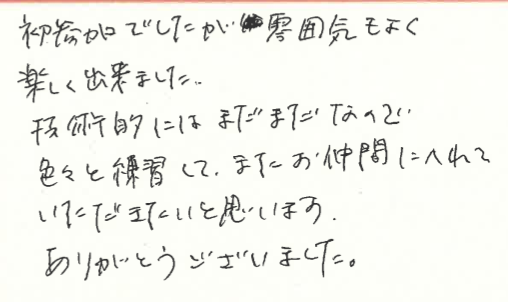 初参加でしたが雰囲気もよく
楽しく出来ました。
技術的にはまだまだなので
色々と練習して、またお仲間に入れて
いただきたいと思います。
ありがとうございました。